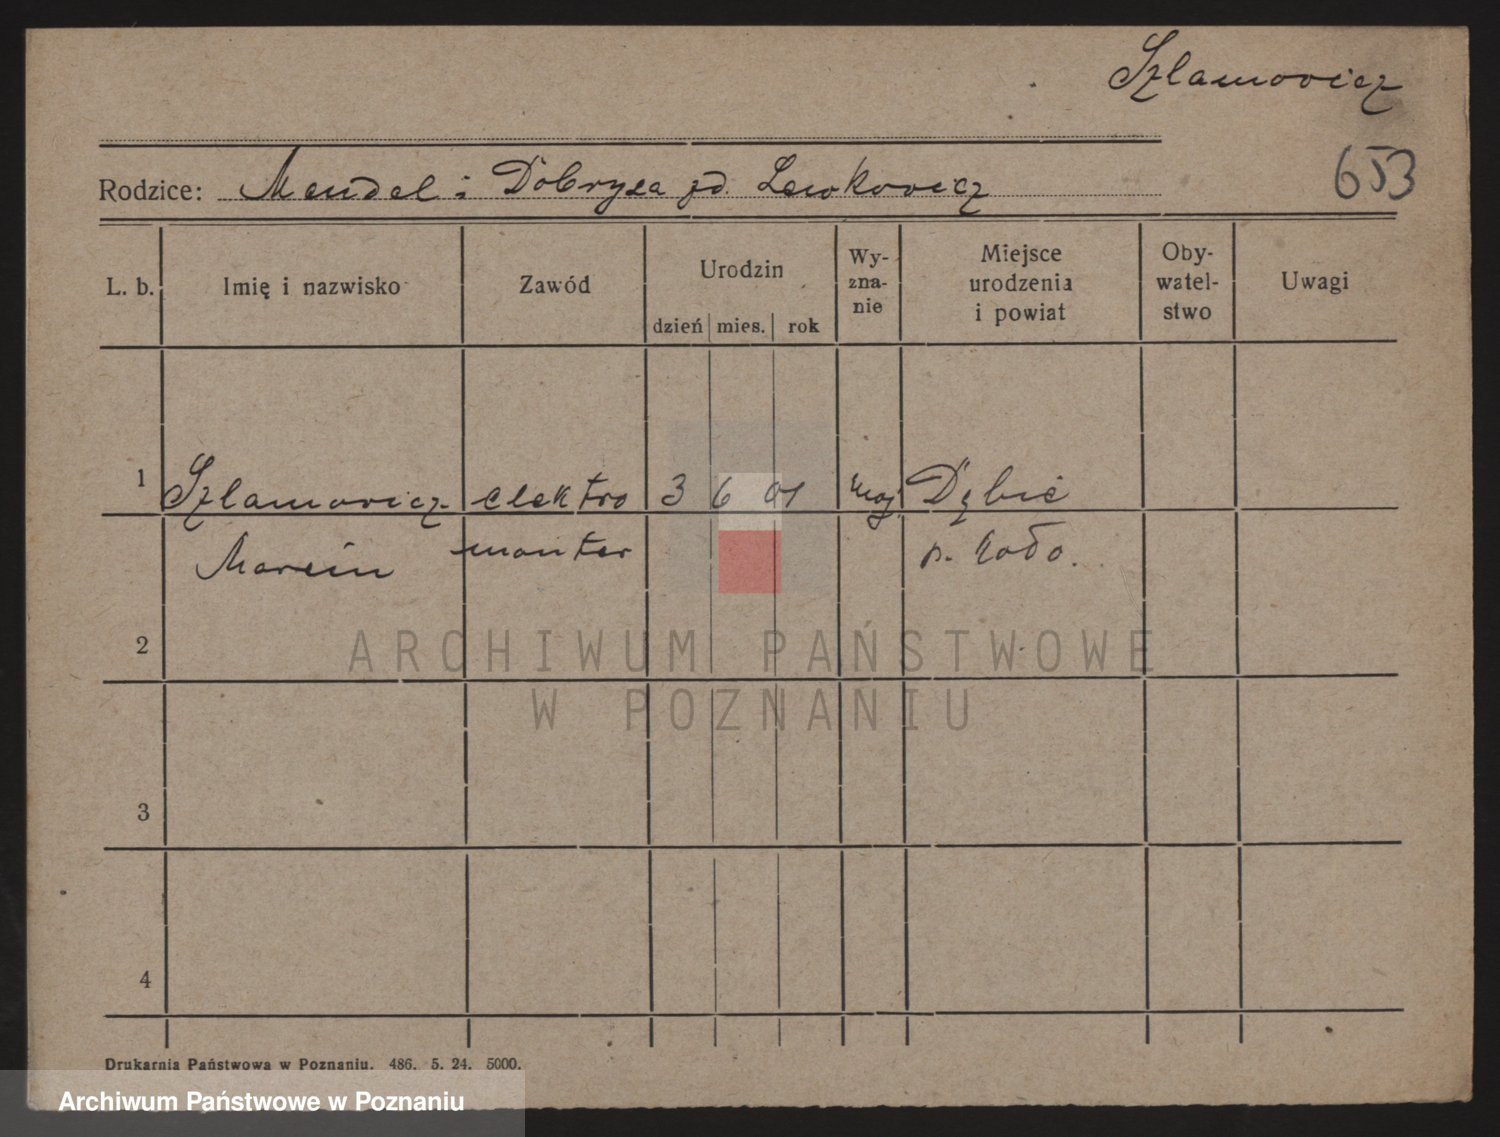 Szlamowicz
653
Rodzice: Mendel i Dobrysa zd. Lewkowicz
L. b. Imię i nazwisko Zawód Urodzin dzień mies. rok Wy-zna-nie Miejsce urodzenia i powiat Oby-watel-stwo Uwagi
1 Szlamowicz elektro 3 6 01 moj. Dąbie
Marcin monter p. Koło.
2
ARCHIWUM PAŃSTWOWE
W POZNANIU
3
4
Drukarnia Państwowa w Poznaniu. 486. 5. 24. 5000.
Archiwum Państwowe w Poznaniu